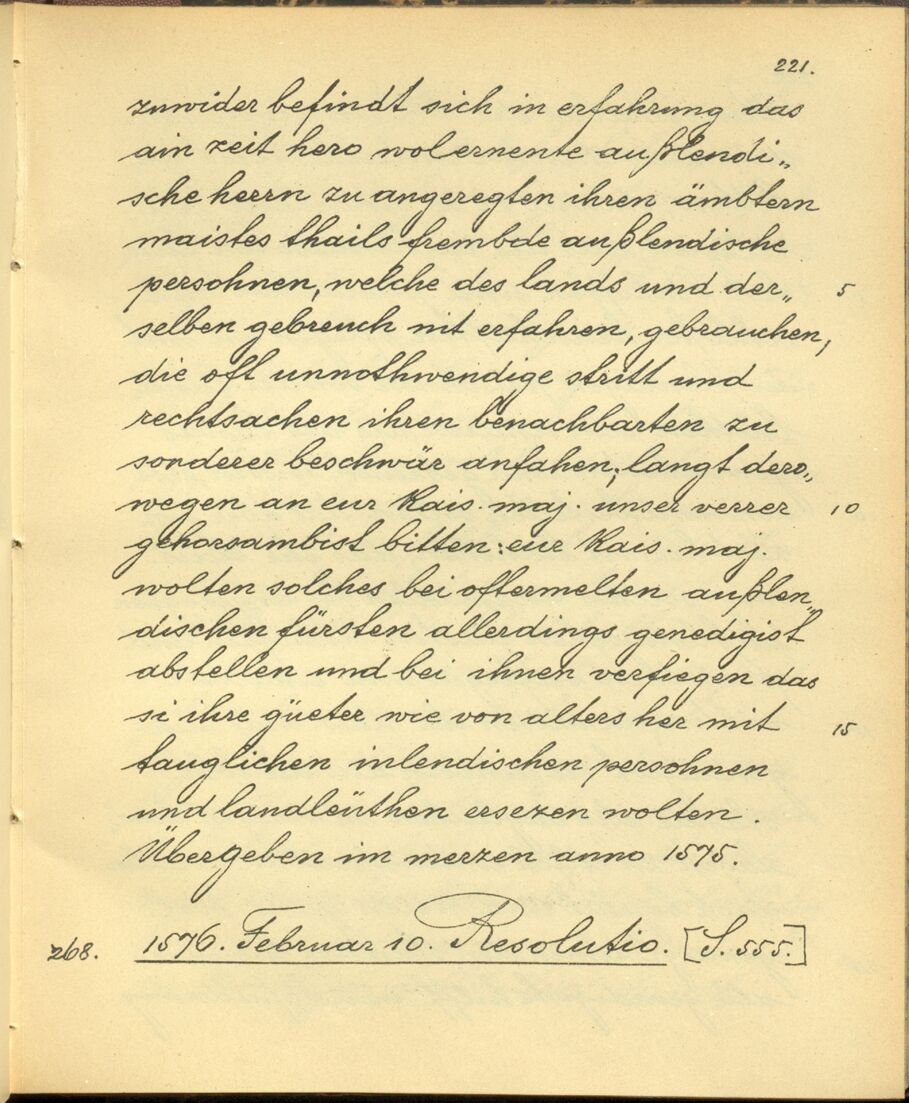 221.
zuwider befindt sich in erfahrung das
ain zeit hero wolernente außlendi„
sche herrn zu angeregten ihren ämbtern
maistes thails frembde außlendische
persohnen, welche des lands und der„ 5
selben gebreuch nit erfahren, gebrauchen,
die oft unnothwendige stritt und
rechtsachen ihren benachbarten zu
sonderer beschwär anfahen; langt dero„
wegen an eur Kais. maj. unser verrer 10
gehorsambist bitten: eur Kais. maj.
wolten solches bei oftermelten außlen„
dischen fürsten allerdings genedigist
abstellen und bei ihnen verfiegen das
si ihre güeter wie von alters her mit 15
tauglichen inlendischen persohnen
und landleüthen ersezen wolten.
Übergeben im merzen anno 1575.
268. 1576. Februar 10. Resolutio. [S. 555.]